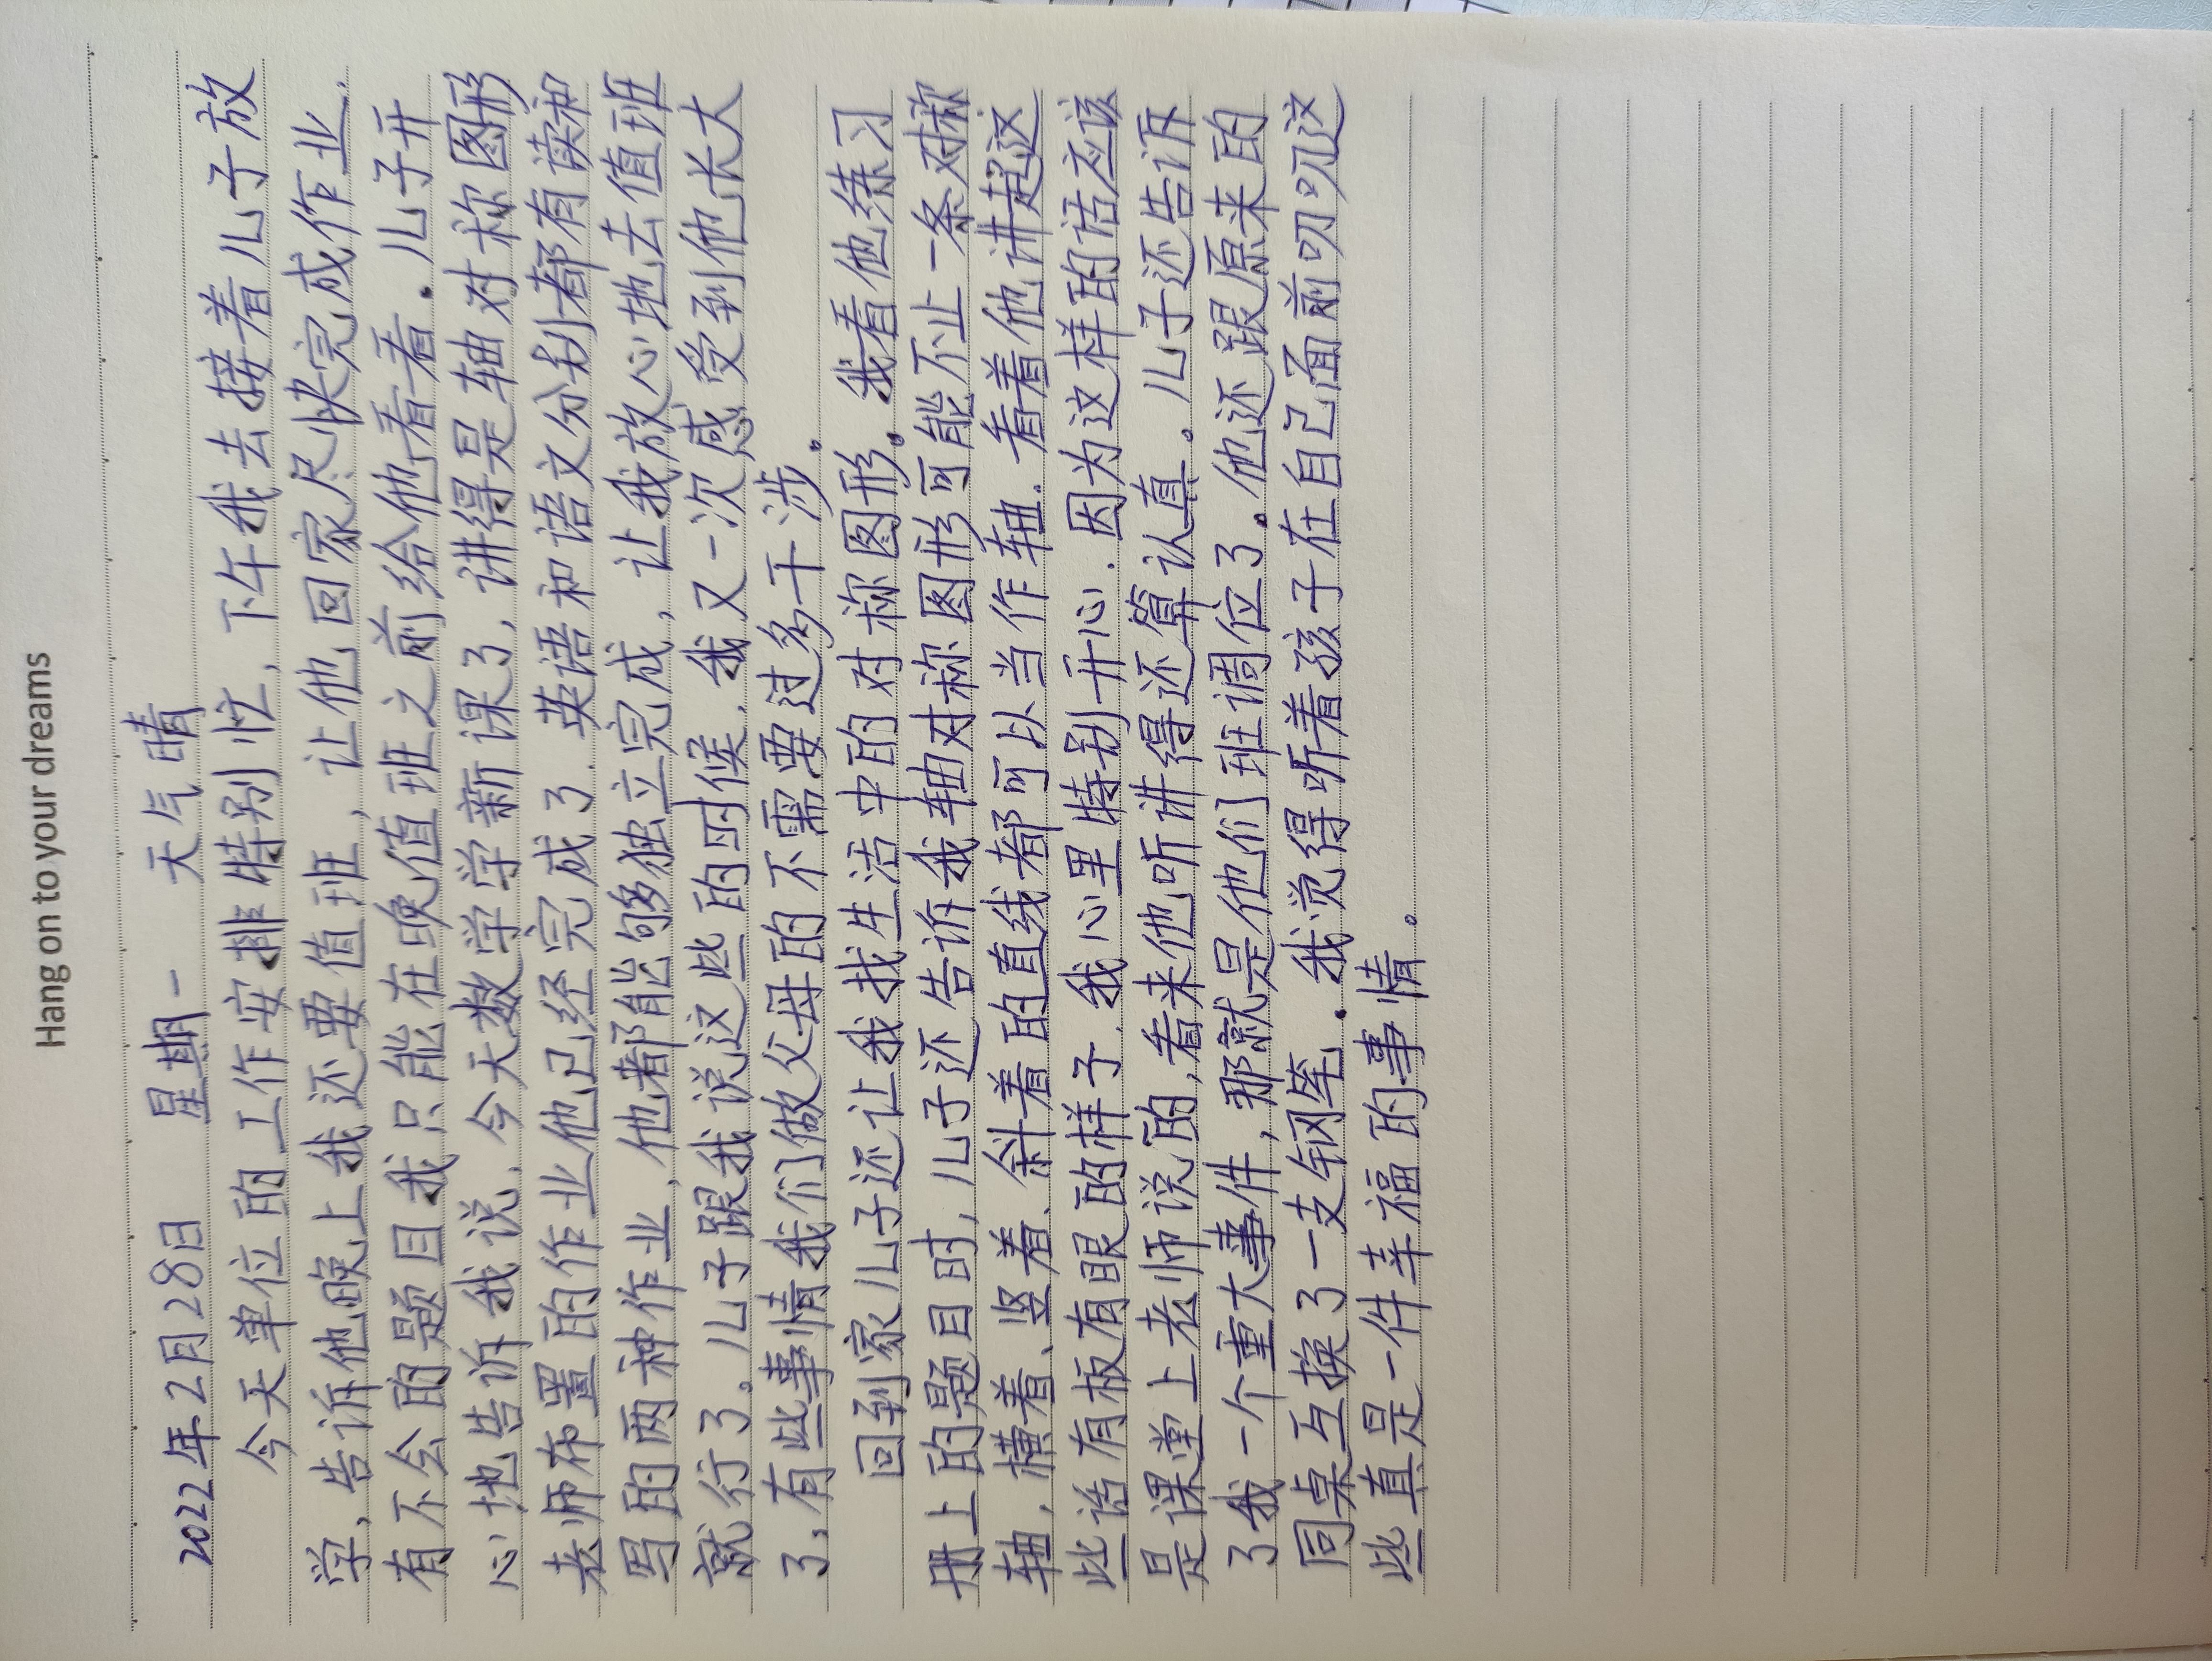 Hang on to your dreams
2022年2月28日 星期一 天气晴
今天单位的工作安排特别忙，下午我去接着儿子放
学，告诉他晚上我还要值班，让他回家尽快完成作业.
有不会的题目我只能在晚值班之前给他看一看.儿子开
心地告诉我说，今天数学学新课了，讲得是轴对称图形
老师布置的作业他已经完成了.英语和语文分别都有读和
写的两种作业，他都能够独立完成，让我放心地去值班
就行了。儿子跟我说这些的时候，我又一次感受到他长大
了，有些事情我们做父母的不需要过多干涉。
回到家儿子还让我找生活中的对称图形。我看他练习
册上的题目时，儿子还告诉我轴对称图形可能不止一条对称
轴，横着、竖着、斜着的直线都可以当作轴.看着他讲起这
些话有板有眼的样子.我心里特别开心.因为这样的话应该
是课堂上老师说的，看来他听讲得还算认真.儿子还告诉
了我一个重大事件，那就是他们班调位了.他还跟原来的
同桌互换了一支钢笔.我觉得听着孩子在自己面前叨叨这
些真是一件幸福的事情.